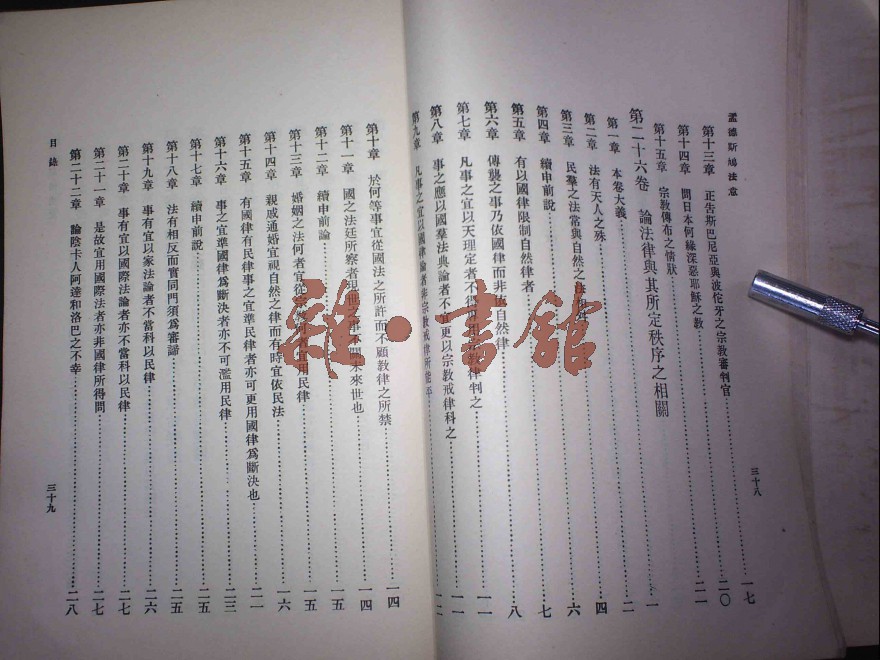 孟德斯鳩法意
第十三章 正告斯巴尼亞與波佗牙之宗教審判官 一七
第十四章 問日本何緣深惡耶穌之教 二〇
第十五章 宗教傳布之情狀 二一
第二十六卷 論法律與其所定秩序之相關 一
第一章 本卷大義 二
第二章 法有天人之殊 四
第三章 民羣之法常與自然之法 六
第四章 續申前說 七
第五章 有以國律限制自然律者 八
第六章 傳襲之事乃依國律而非依自然律
第七章 凡事之宜以天理定者不得 教律判之 一一
第八章 事之應以國羣法典論者不宜更以宗教戒律科之 一一
第九章 凡事之宜以國律論者非宗教戒律所能 一二
三十八
第十章 於何等事宜從國法之所許而不顧教律之所禁 一四
第十一章 國之法廷所察者現世之 不 未來世也 一四
第十二章 續申前論 一五
第十三章 婚姻之法何者宜從宗教何者宜用民律 一五
第十四章 親戚通婚宜視自然之律而有時宜依民法 一六
第十五章 有國律有民律事之宜準民律者亦可更用國律爲斷決也 二一
第十六章 事之宜準國律爲斷決者亦不可濫用民律 二三
第十七章 續申前說 二五
第十八章 法有相反而實同門須爲審諦 二五
第十九章 事有宜以家法論者不當科以民律 二六
第二十章 事有宜以國際法論者亦不當科以民律 二七
第二十一章 是故宜用國際法者亦非國律所得問 二七
第二十二章 論陰卡人阿達和洛巴之不幸 二八
目錄
三十九
雜·書館